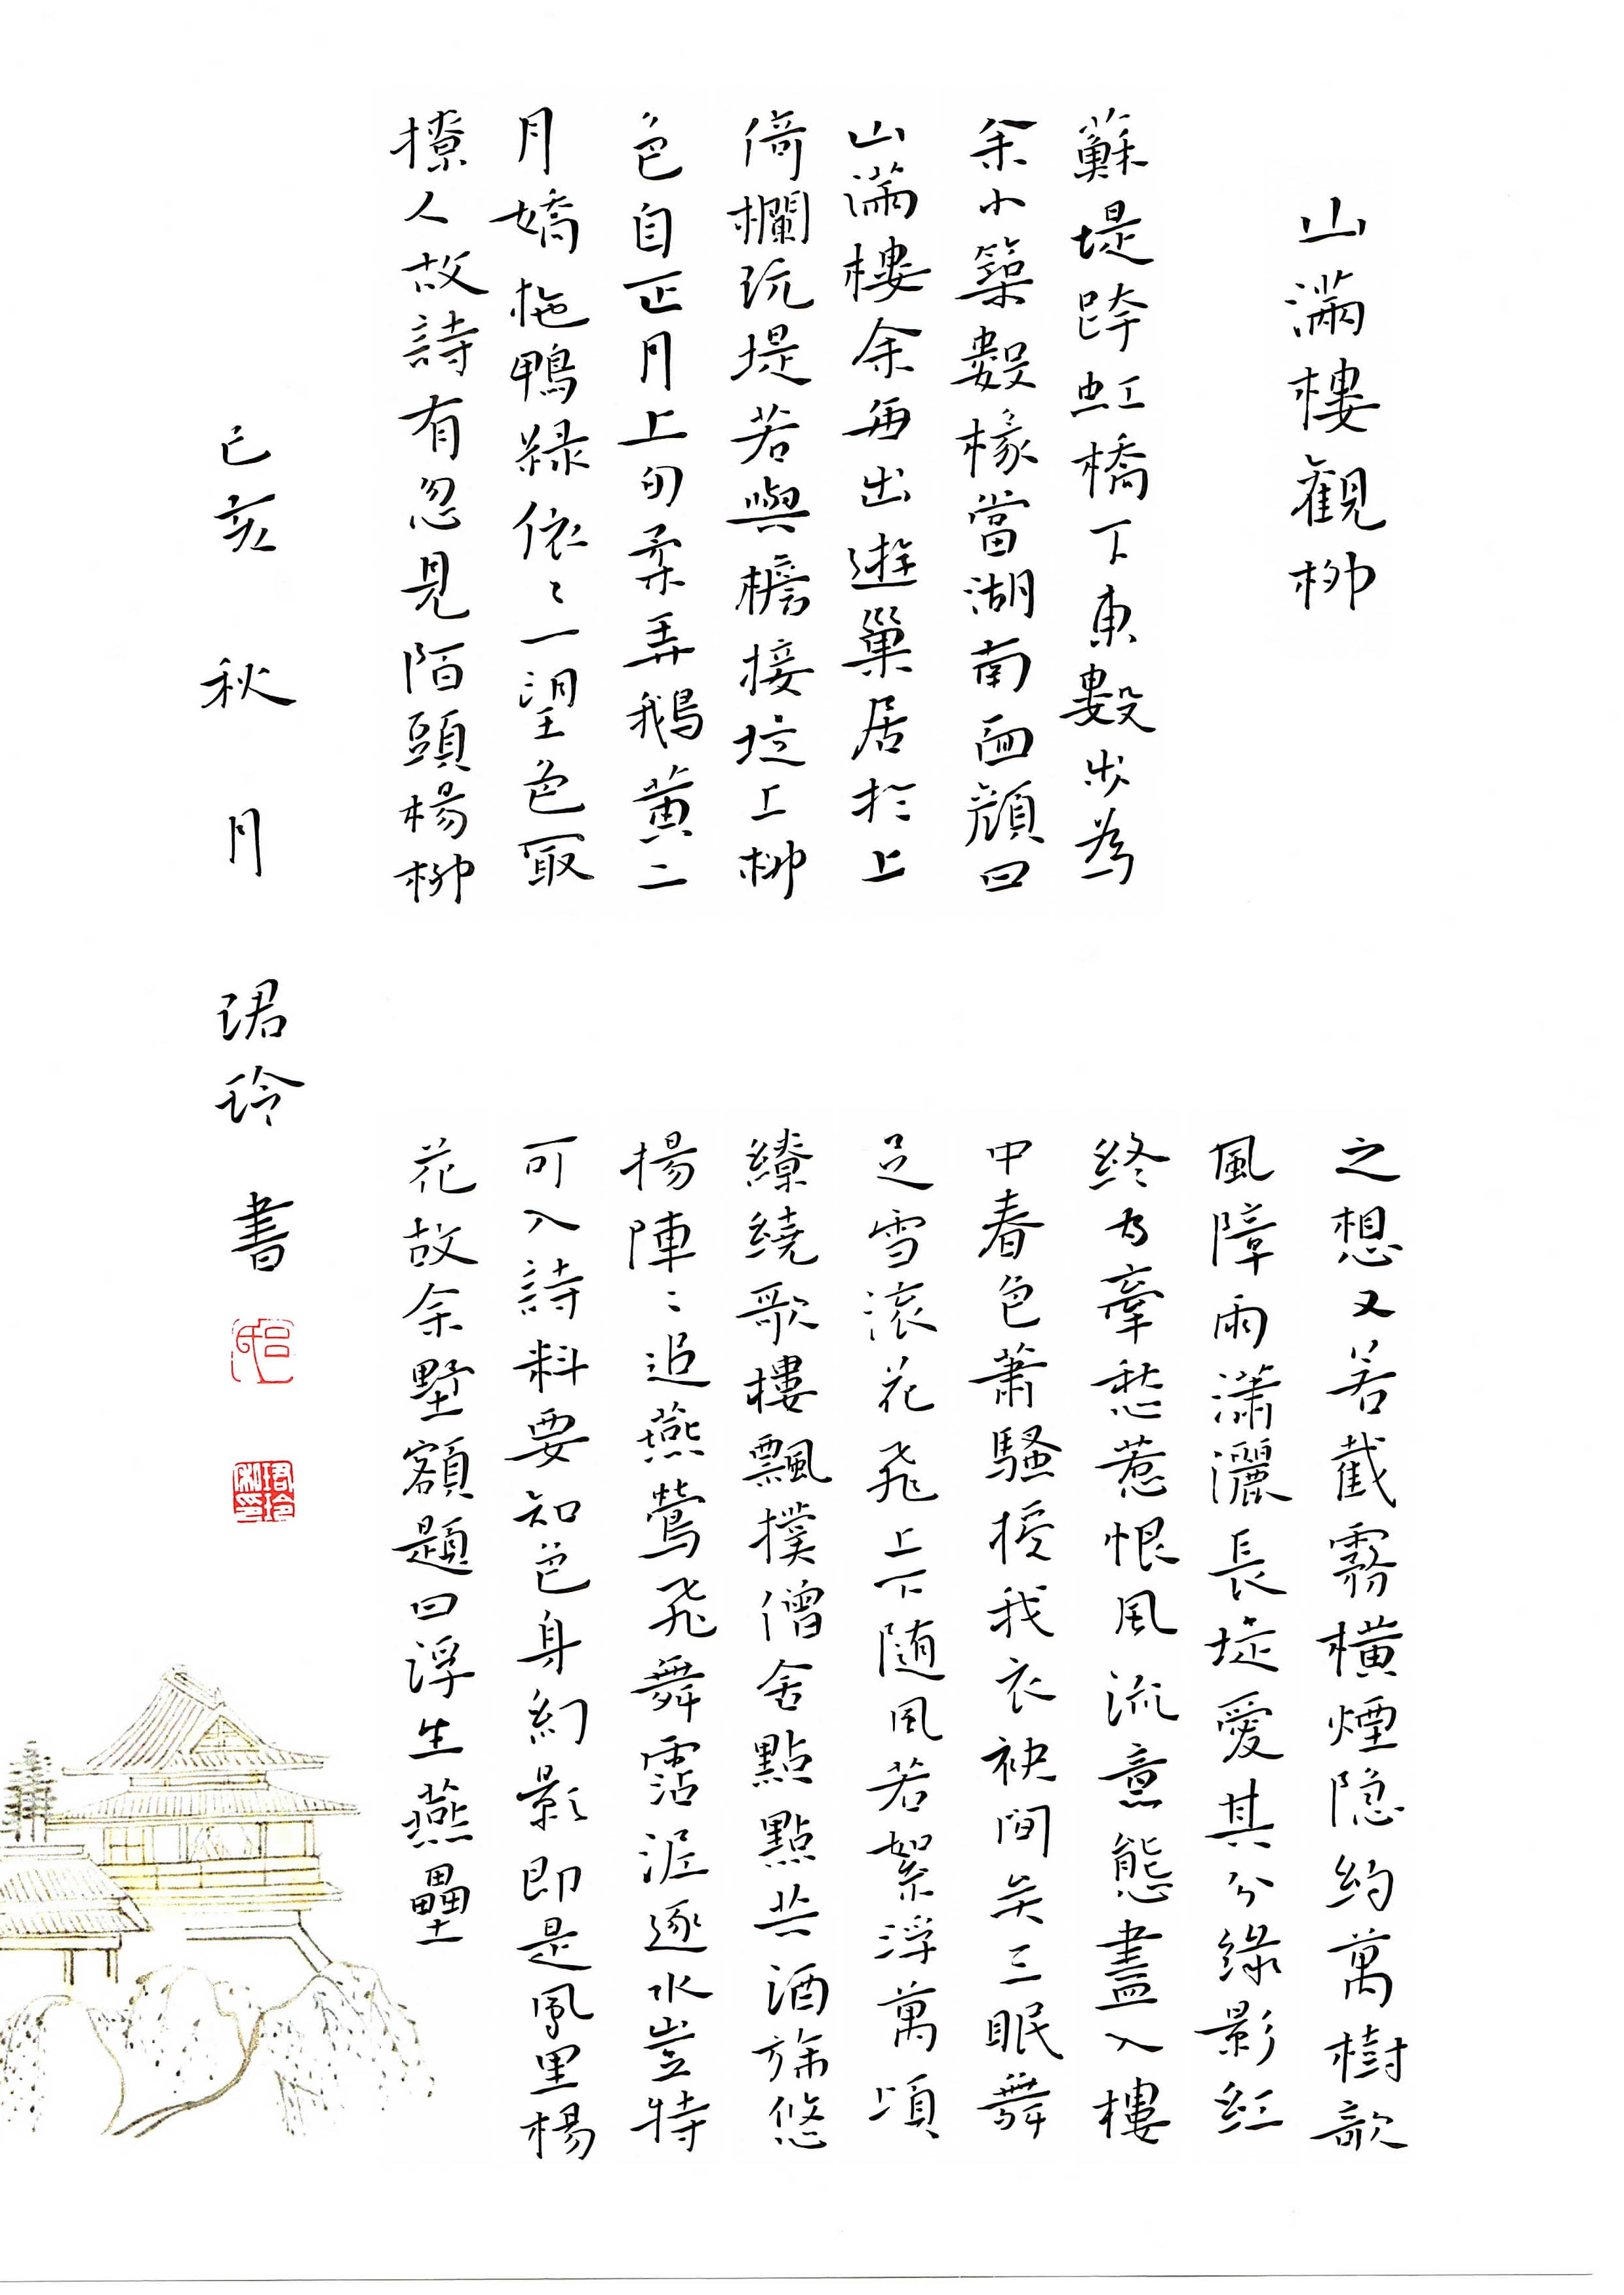 山滿樓觀柳
蘇堤跨虹橋下東數步為
余小築數椽當湖南面顏曰
山滿樓余每出遊巢居於上
倚欄玩堤若與檐接堤上柳
色自正月上旬柔弄鵝黃二
月嬌拖鴨綠依〻一望色最
撩人故詩有忽見陌頭楊柳
之想又若截霧橫煙隱約萬樹欹
風障雨瀟灑長堤愛其分綠影紅
終為牽愁惹恨風流意態盡入樓
中春色蕭騷授我衣袂間矣三眠舞
足雪滾花飛上下隨風若絮浮萬頃
繚繞歌樓飄撲僧舍點點共酒旆悠
揚陣〻追燕鶯飛舞霑泥逐水豈特
可入詩料要知色身幻影即是風里楊
花故余墅額題曰浮生燕壘
己亥 秋 月 珺玲 書
珺玲